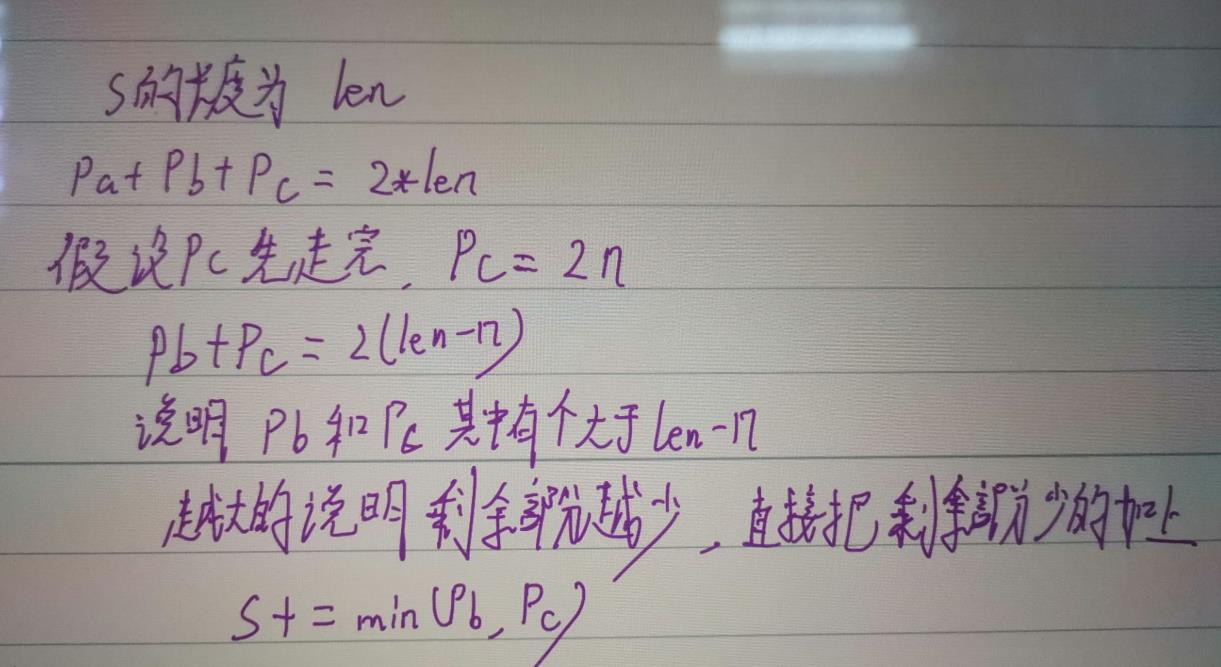 S的长度为 len
Pa+Pb+Pc=2*len
假设Pc先走完, Pc=2n
Pb+Pc=2(len-n)
说明 Pb和Pc 其中有个大于len-n
越大的说明剩余部分越少, 直接把剩余部分少的加上
S+=min(Pb, Pc)